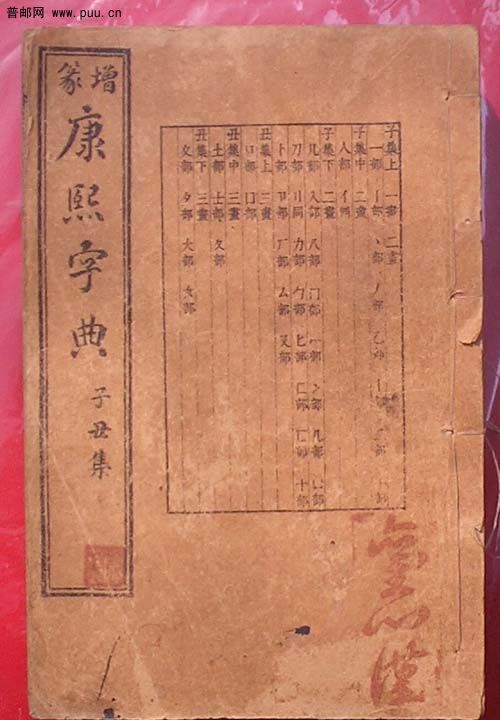 普邮网 www.puu.cn
增篆
康熙字典
子丑集
子集上 一畫 二畫
一部 丨部 丶部 丿部 乙部 亅部 二部 亠部
子集中 二畫
人部 亻同
子集下 二畫
儿部 入部 八部 冂部 冖部 冫部 几部 凵部
刀部 刂同 力部 勹部 匕部 匚部 匸部 十部
卜部 卩部 厂部 厶部 又部
丑集上 三畫
口部 囗部
丑集中 三畫
土部 士部 夂部
丑集下 三畫
夊部 夕部 大部 女部